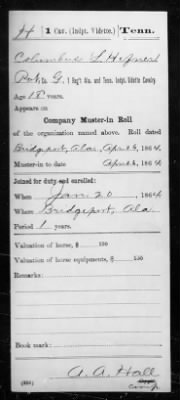 H | 1 Cav. (Indpt. Vidette.) | Tenn.
Columbus L. Hefner
Pvt, Co. G, 1 Reg't Ala. and Tenn. Indpt. Vidette Cavalry.
Age 18 years.
Appears on
Company Muster-in Roll
of the organization named above. Roll dated
Bridgeport, Ala, Apr. 26, 1864.
Muster-in to date Apr. 26, 1864.
Joined for duty and enrolled:
When Jan 20, 1864
Where Bridgeport, Ala.
Period 1 years.
Valuation of horse, $ 100
Valuation of horse equipments, $ 100
Remarks:
Book mark:
A. A. Hall